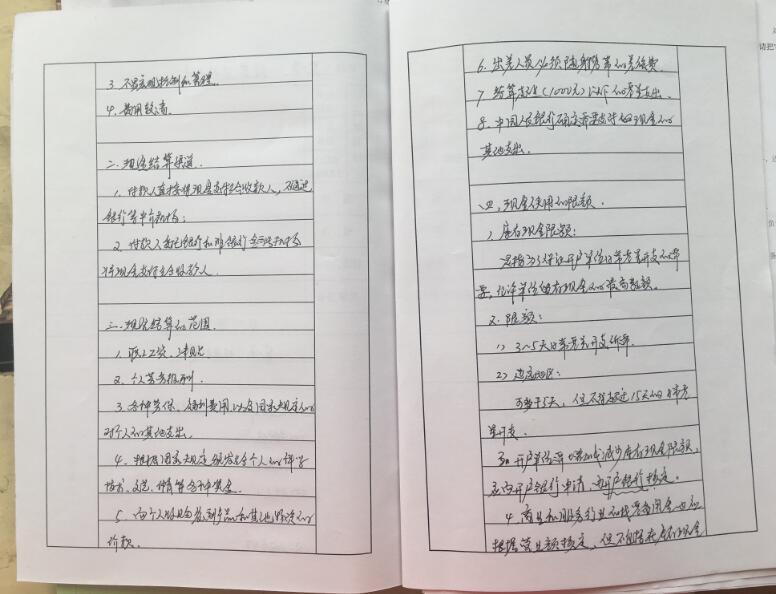 3. 不易实现控制和管理
4. 费用较高.
二. 现金结算渠道.
1. 付款人直接将现金支付给收款人, 不通过
银行等中介机构;
2. 付款人委托银行和非银行金融机构
将现金支付给收款人.
三. 现金结算的范围
1. 职工工资、津贴
2. 个人劳务报酬.
3. 各种劳保、福利费用以及国家规定的
对个人的其他支出.
4. 根据国家规定颁发给个人的科学
技术、文艺、体育等各种奖金.
5. 向个人收购农副产品和其他物资的
价款.
6. 出差人员必须随身携带的差旅费.
7. 结算起点(1000元)以下的零星支出.
8. 中国人民银行确定需要支付的现金的
其他支出.
四. 现金使用的限额.
1. 库存现金限额:
是指为了保证开户单位日常零星开支的需
要, 允许单位留存现金的最高数额.
2. 限额:
1) 3~5天日常零星开支所需
2) 边远地区:
可多于5天, 但不得超过15天的日常零
星开支.
3. 开户单位需增加或减少库存现金限额,
应向开户银行申请, 由开户银行核定.
4. 商业和服务行业的找零备用金也应
根据营业额核定, 但不包括在库存现金